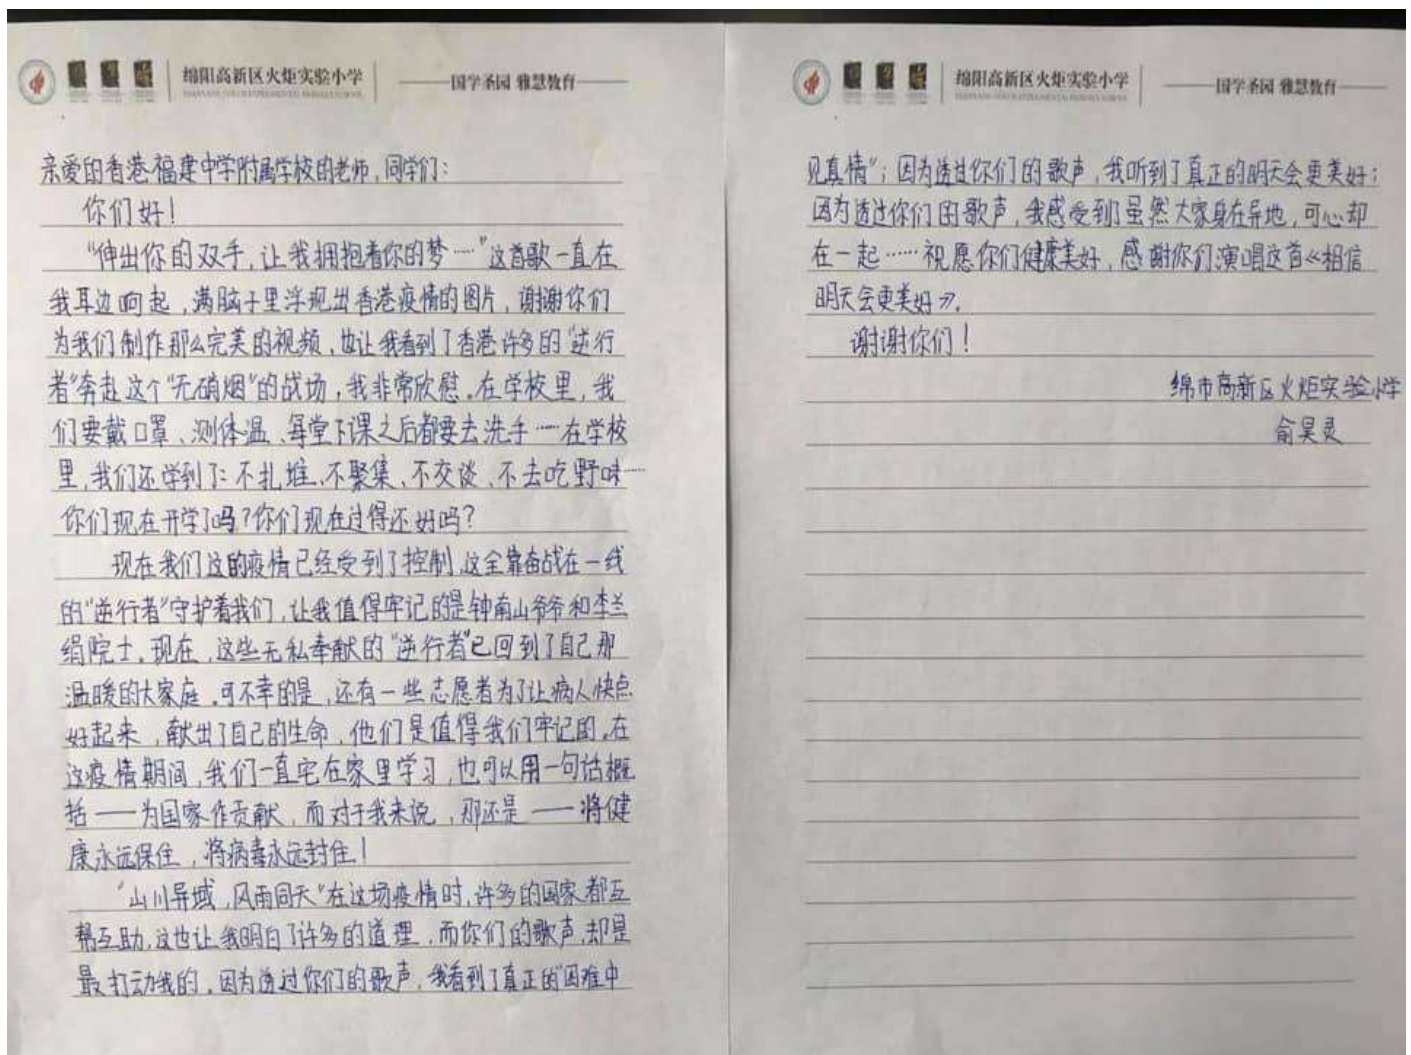 绵阳高新区火炬实验小学
国学圣园 雅慧教育
亲爱的香港福建中学附属学校的老师,同学们:
你们好!
“伸出你的双手,让我拥抱着你的梦……”这首歌一直在
我耳边响起,满脑子里浮现出香港疫情的图片,谢谢你们
为我们制作那么完美的视频,也让我看到了香港许多的“逆行
者”奔赴这个“无硝烟”的战场,我非常欣慰。在学校里,我
们要戴口罩、测体温、每堂下课之后都要去洗手……在学校
里,我们还学到了:不扎堆、不聚集、不交谈、不去吃野味……
你们现在开学了吗?你们现在过得还好吗?
现在我们这的疫情已经受到了控制,这全靠奋战在一线
的“逆行者”守护着我们,让我值得牢记的是钟南山爷爷和李兰
绢院士。现在,这些无私奉献的“逆行者”已回到了自己那
温暖的大家庭。可不幸的是,还有一些志愿者为了让病人快点
好起来,献出了自己的生命,他们是值得我们牢记的。在
这疫情期间,我们一直宅在家里学习,也可以用一句话概
括——为国家作贡献,而对于我来说,那还是——将健
康永远保住,将病毒永远封住!
“山川异域,风雨同天”在这场疫情时,许多的国家都互
帮互助,这也让我明白了许多的道理,而你们的歌声,却是
最打动我的。因为透过你们的歌声,我看到了真正的“困难中
绵阳高新区火炬实验小学
国学圣园 雅慧教育
见真情”;因为透过你们的歌声,我听到了真正的明天会更美好;
因为透过你们的歌声,我感受到了虽然大家身在异地,可心却
在一起……祝愿你们健康美好,感谢你们演唱这首《相信
明天会更美好》。
谢谢你们!
绵市高新区火炬实验小学
俞昊灵